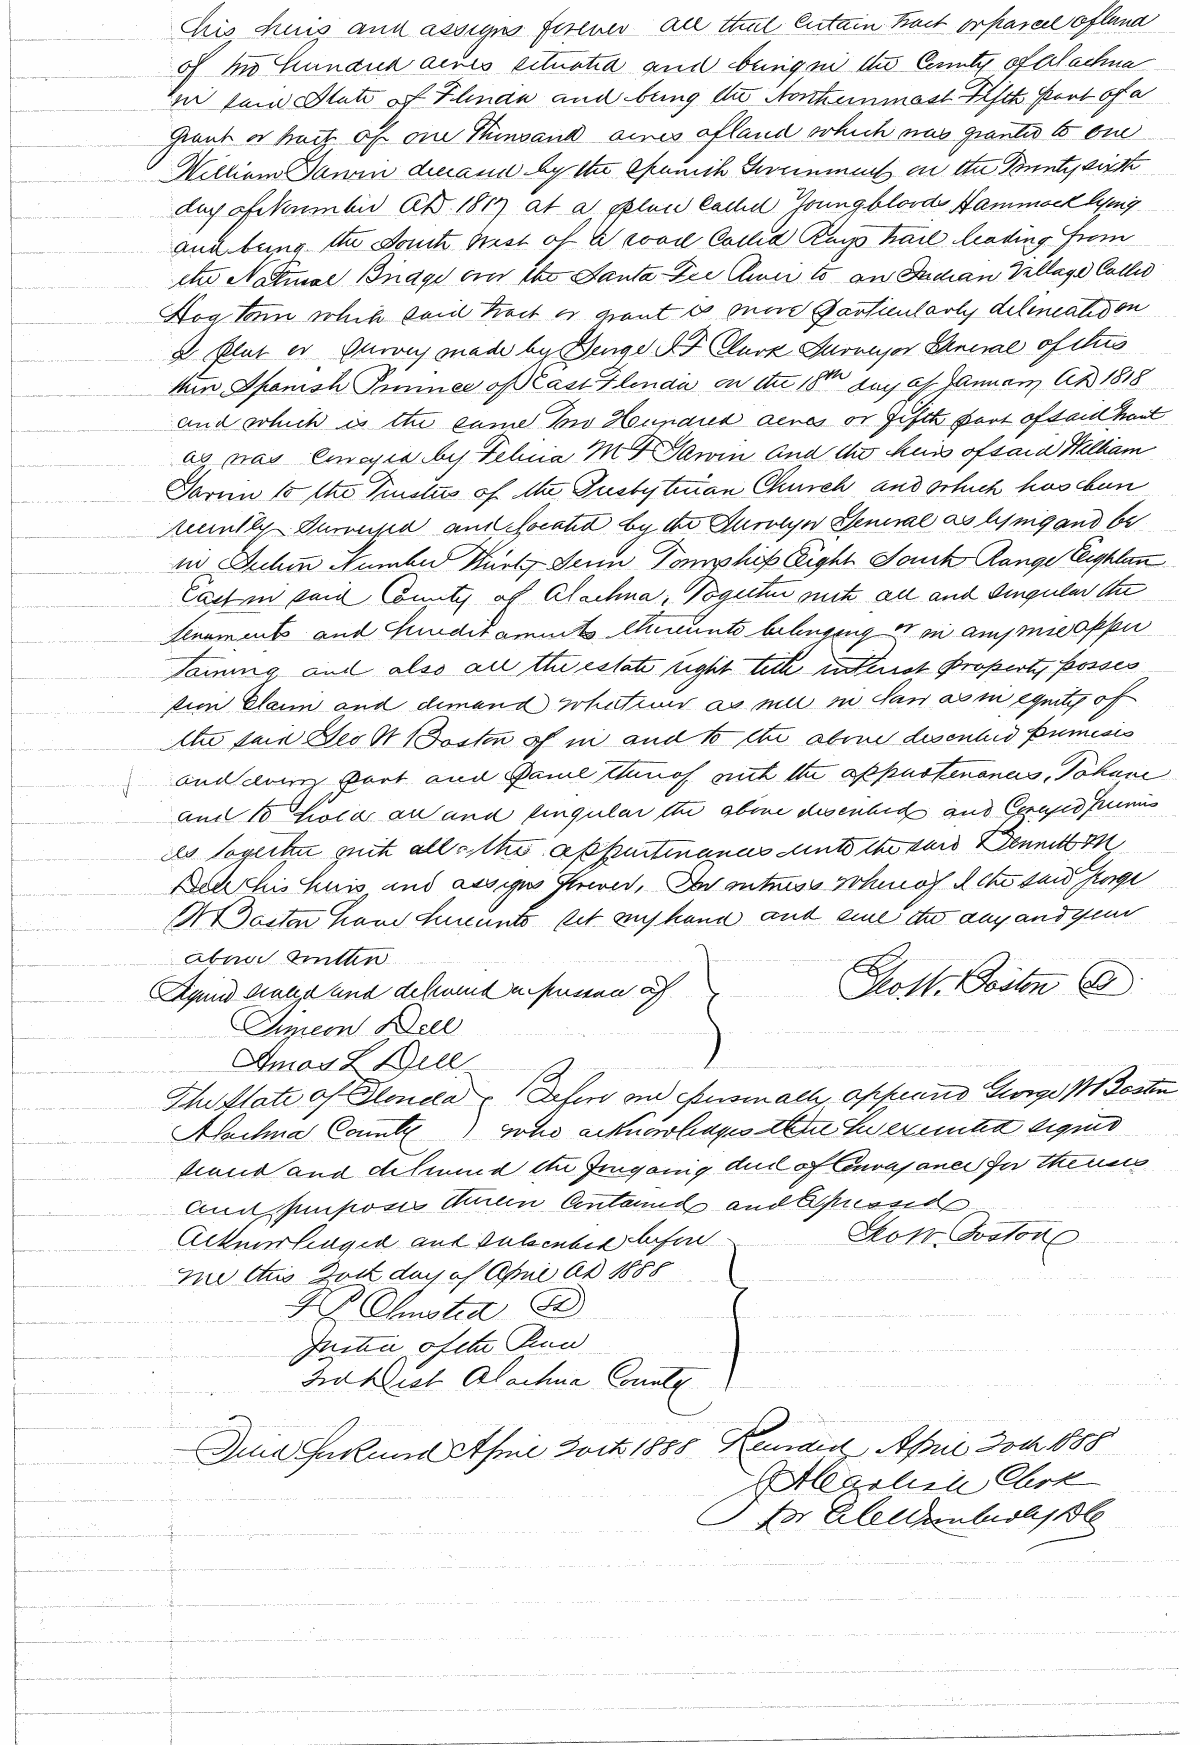 his heirs and assigns forever all that certain tract or parcel of land
of two hundred acres situated and being in the County of Alachua
in said State of Florida and being the Northernmost Fifth part of a
grant or tract of one Thousand acres of land which was granted to one
William Garvin deceased by the Spanish Government on the Twenty sixth
day of November AD 1817 at a place called Youngbloods Hammock lying
and being the South West of a road Called Rays trail leading from
the Natural Bridge over the Santa Fee River to an Indian Village Called
Hog town which said tract or grant is more particularly delineated on
a plat or Survey made by George J F Clark Surveyor General of this
then Spanish Province of East Florida on the 18th day of January AD 1818
and which is the same Two Hundred acres or fifth part of said tract
as was conveyed by Felicia M F Garvin and the heirs of said William
Garvin to the Trustees of the Presbyterian Church and which has been
recently Surveyed and located by the Surveyor General as lying and be
in Section Number Thirty Seven Township Eight South Range Eighteen
East in said County of Alachua, Together with all and singular the
tenaments and hereditaments thereunto belonging or in any wise apper
taining and also all the estate right title interest property posses
sion Claim and demand whatever as well in law as in equity of
the said Geo W Boston of in and to the above described premises
and every part and parcel thereof with the appurtenances, To have
and to hold all and singular the above described and Conveyed premis
es together with all the appurtenances unto the said Bennett M
Dell his heirs and assigns forever, In witness whereof I the said George
W Boston have hereunto set my hand and seal the day and year
above written
Signed sealed and delivered in presence of Geo. W. Boston
Simeon Dell
Amos L Dell
The State of Florida Before me personally appeared George W Boston
Alachua County ) who acknowledges that he executed signed
sealed and delivered the foregoing deed of Conveyance for the uses
and purposes therein Contained and Expressed
Acknowledged and subscribed before Geo W. Boston
me this 20th day of April AD 1888
Olmsted
Justice of the Peace
3rd Dist Alachua County
Filed for Record April 20th 1888 Recorded April 20th 1888
Clerk